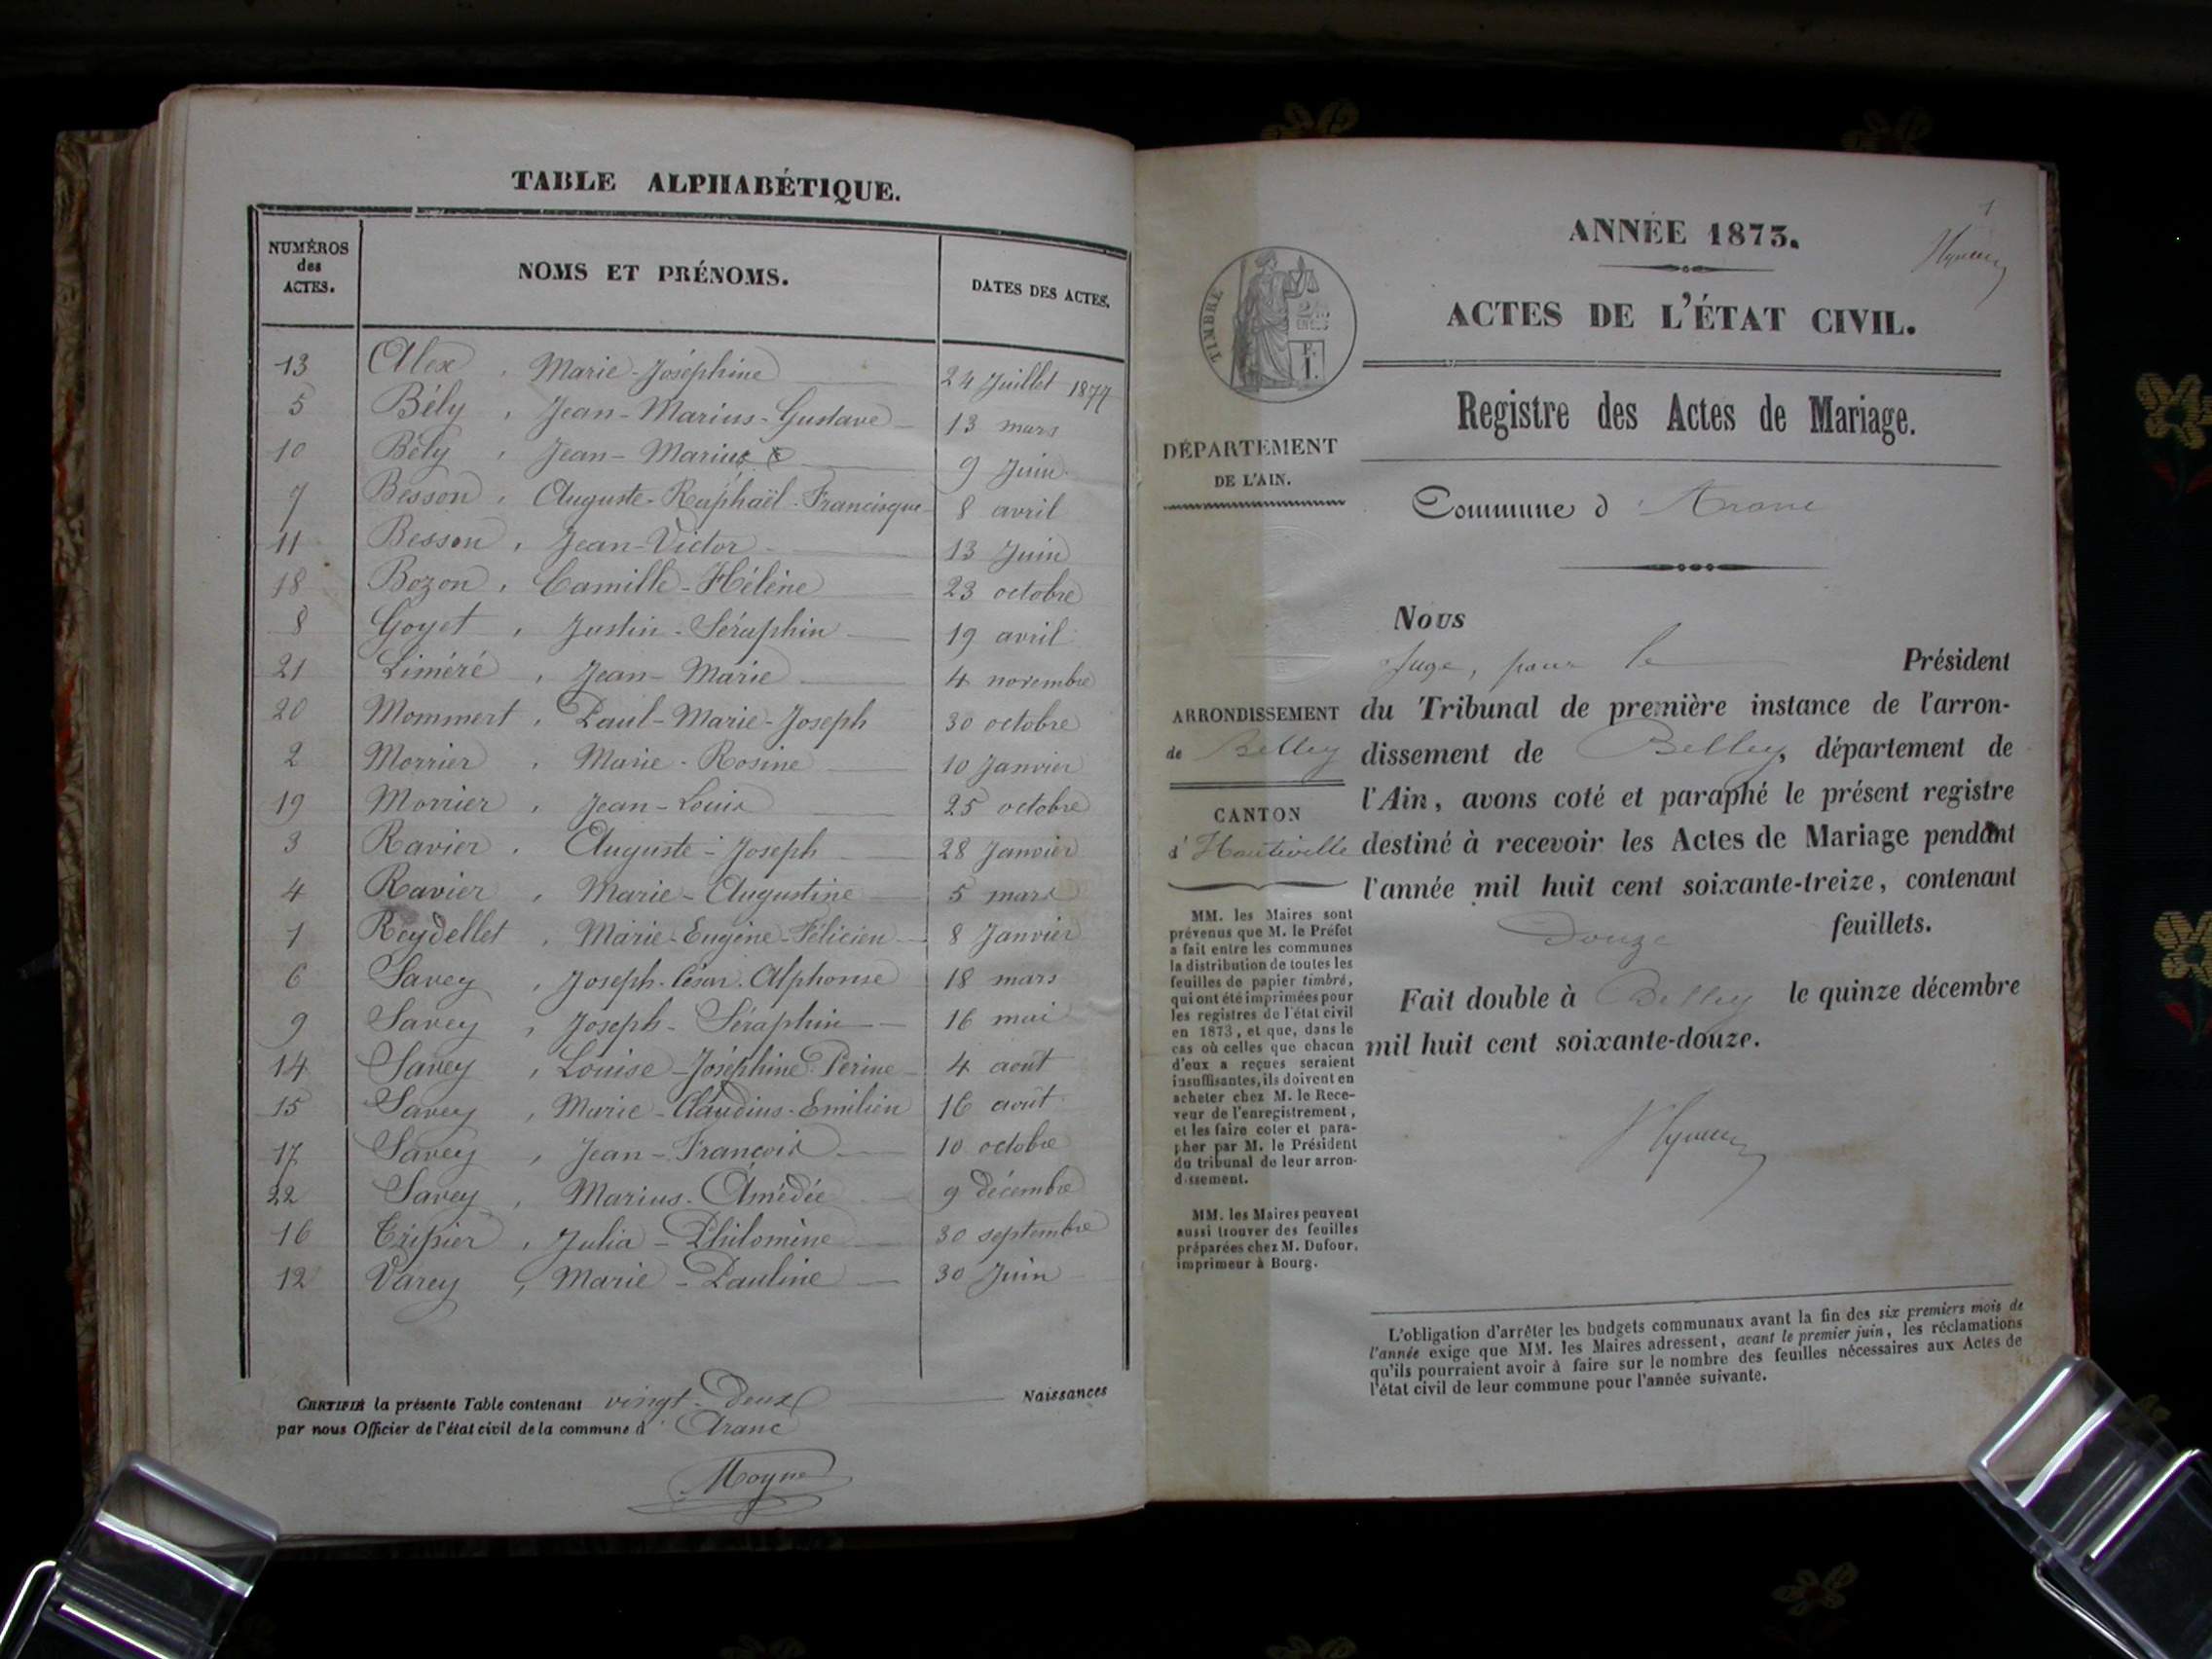 TABLE ALPHABÉTIQUE.
NUMÉROS des ACTES.
NOMS ET PRÉNOMS.
DATES DES ACTES.
13 Alex, Marie-Joséphine 24 Juillet 1877
5 Bély, Jean-Marius-Gustave 13 mars
10 Bély, Jean-Marius 9 Juin
7 Besson, Auguste-Raphaël-Francisque 8 avril
11 Besson, Jean-Victor 13 Juin
18 Bozon, Camille-Hélène 23 octobre
8 Goyet, Justin-Séraphin 19 avril
21 Liméré, Jean-Marie 4 novembre
20 Mommert, Paul-Marie-Joseph 30 octobre
2 Morrier, Marie-Rosine 10 Janvier
19 Morrier, Jean-Louis 25 octobre
3 Ravier, Auguste-Joseph 28 Janvier
4 Ravier, Marie-Augustine 5 mars
1 Reydellet, Marie-Eugène-Félicien 8 Janvier
6 Savey, Joseph-César-Alphonse 18 mars
9 Savey, Joseph-Séraphin 16 mai
14 Savey, Louise-Joséphine-Perine 4 août
15 Savey, Marie-Claudius-Emilien 16 août
17 Savey, Jean-François 10 octobre
22 Savey, Marius-Amédée 9 décembre
16 Tripier, Julia-Philomène 30 septembre
12 Varey, Marie-Pauline 30 Juin
CERTIFIÉ la présente Table contenant vingt-deux Naissances
par nous Officier de l'état civil de la commune d' Aranc
Moyne
1
ANNÉE 1873.
ACTES DE L'ÉTAT CIVIL.
TIMBRE
Registre des Actes de Mariage.
DÉPARTEMENT
DE L'AIN.
Commune d' Aranc
Nous
Juge, pour le Président
du Tribunal de première instance de l'arron-
dissement de Belley, département de
l'Ain, avons coté et paraphé le présent registre
destiné à recevoir les Actes de Mariage pendant
l'année mil huit cent soixante-treize, contenant
Douze feuillets.
Fait double à Belley le quinze décembre
mil huit cent soixante-douze.
ARRONDISSEMENT
de Belley
CANTON
d'Hauteville
MM. les Maires sont
prévenus que M. le Préfet
a fait entre les communes
la distribution de toutes les
feuilles de papier timbré,
qui ont été imprimées pour
les registres de l'état civil
en 1873, et que, dans le
cas où celles que chacun
d'eux a reçues seraient
insuffisantes, ils doivent en
acheter chez M. le Rece-
veur de l'enregistrement,
et les faire coter et para-
pher par M. le Président
du tribunal de leur arron-
dissement.
MM. les Maires peuvent
aussi trouver des feuilles
préparées chez M. Dufour,
imprimeur à Bourg.
L'obligation d'arrêter les budgets communaux avant la fin des six premiers mois de
l'année exige que MM. les Maires adressent, avant le premier juin, les réclamations
qu'ils pourraient avoir à faire sur le nombre des feuilles nécessaires aux Actes de
l'état civil de leur commune pour l'année suivante.